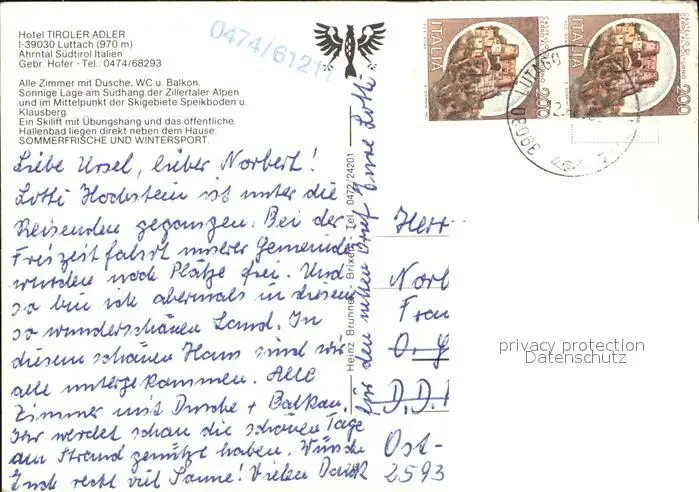 Hotel TIROLER ADLER
I-39030 Luttach (970 m)
Ahrntal Südtirol Italien
Gebr Hofer - Tel. 0474/68293
0474/6121
Alle Zimmer mit Dusche, WC u. Balkon.
Sonnige Lage am Südhang der Zillertaler Alpen
und im Mittelpunkt der Skigebiete Speikboden u.
Klausberg.
Ein Skilift mit Übungshang und das öffentliche
Hallenbad liegen direkt neben dem Hause.
SOMMERFRISCHE UND WINTERSPORT.
Liebe Ursel, lieber Norbert!
Lotti Hochstein ist unter die
Reisenden gegangen. Bei der
Freizeitfahrt unserer Gemeinde
wurden noch Plätze frei. Und
so bin ich abermals in diesem
so wunderschönen Land. In
diesem schönen Haus sind wir
alle untergekommen. Alle
Zimmer mit Dusche + Balkon.
Ihr werdet schon die schönen Tage
am Strand genützt haben. Wünsche
Euch recht viel Sonne! Vielen Dank
für den netten Brief Eure Lotti
Heinz Brunner, Brixen - Tel. 0472/24201
ITALIA
200
ITALIA
200
LUTAGO
39030
Herr
Norb
Frau
O.
D.D.
Ost-
2593
privacy protection
Datenschutz